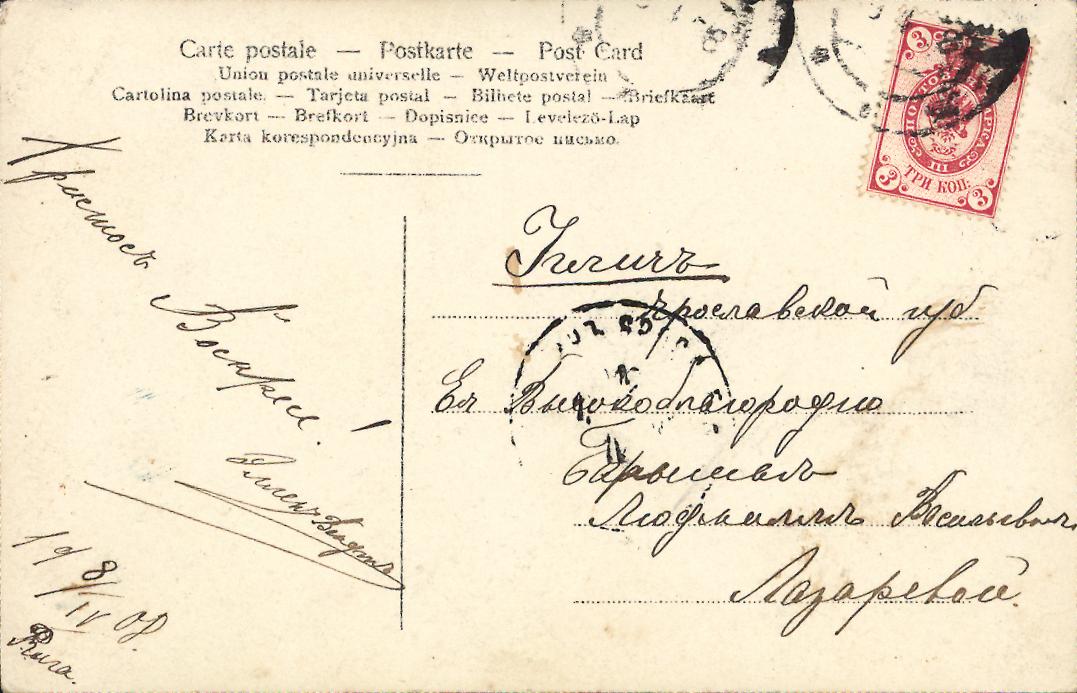 Carte postale — Postkarte — Post Card
Union postale universelle — Weltpostverein
Cartolina postale. — Tarjeta postal — Bilhete postal — Briefkaart
Brevkort — Brefkort — Dopisnice — Levelező-Lap
Karta korespondencyjna — Открытое письмо.
3 3
МАРКА
III
ТРИ КОП.
3 3
Христосъ
Воскресе!
19 8/IV 08
Рига.
Угличъ
Ярославской губ
Ея Высокоблагородію
Барышнѣ
Людмиллѣ Васильевнѣ
Лазаревой.